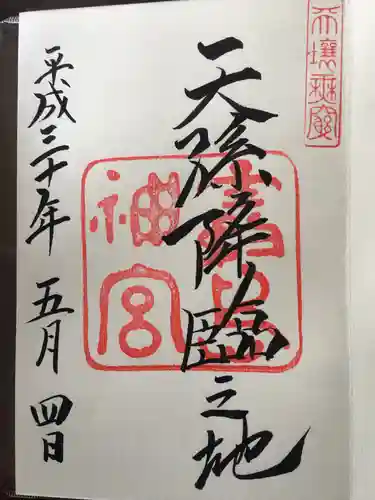 天壤無窮
天孫降臨之地
神宮
平成三十年 五月 四日